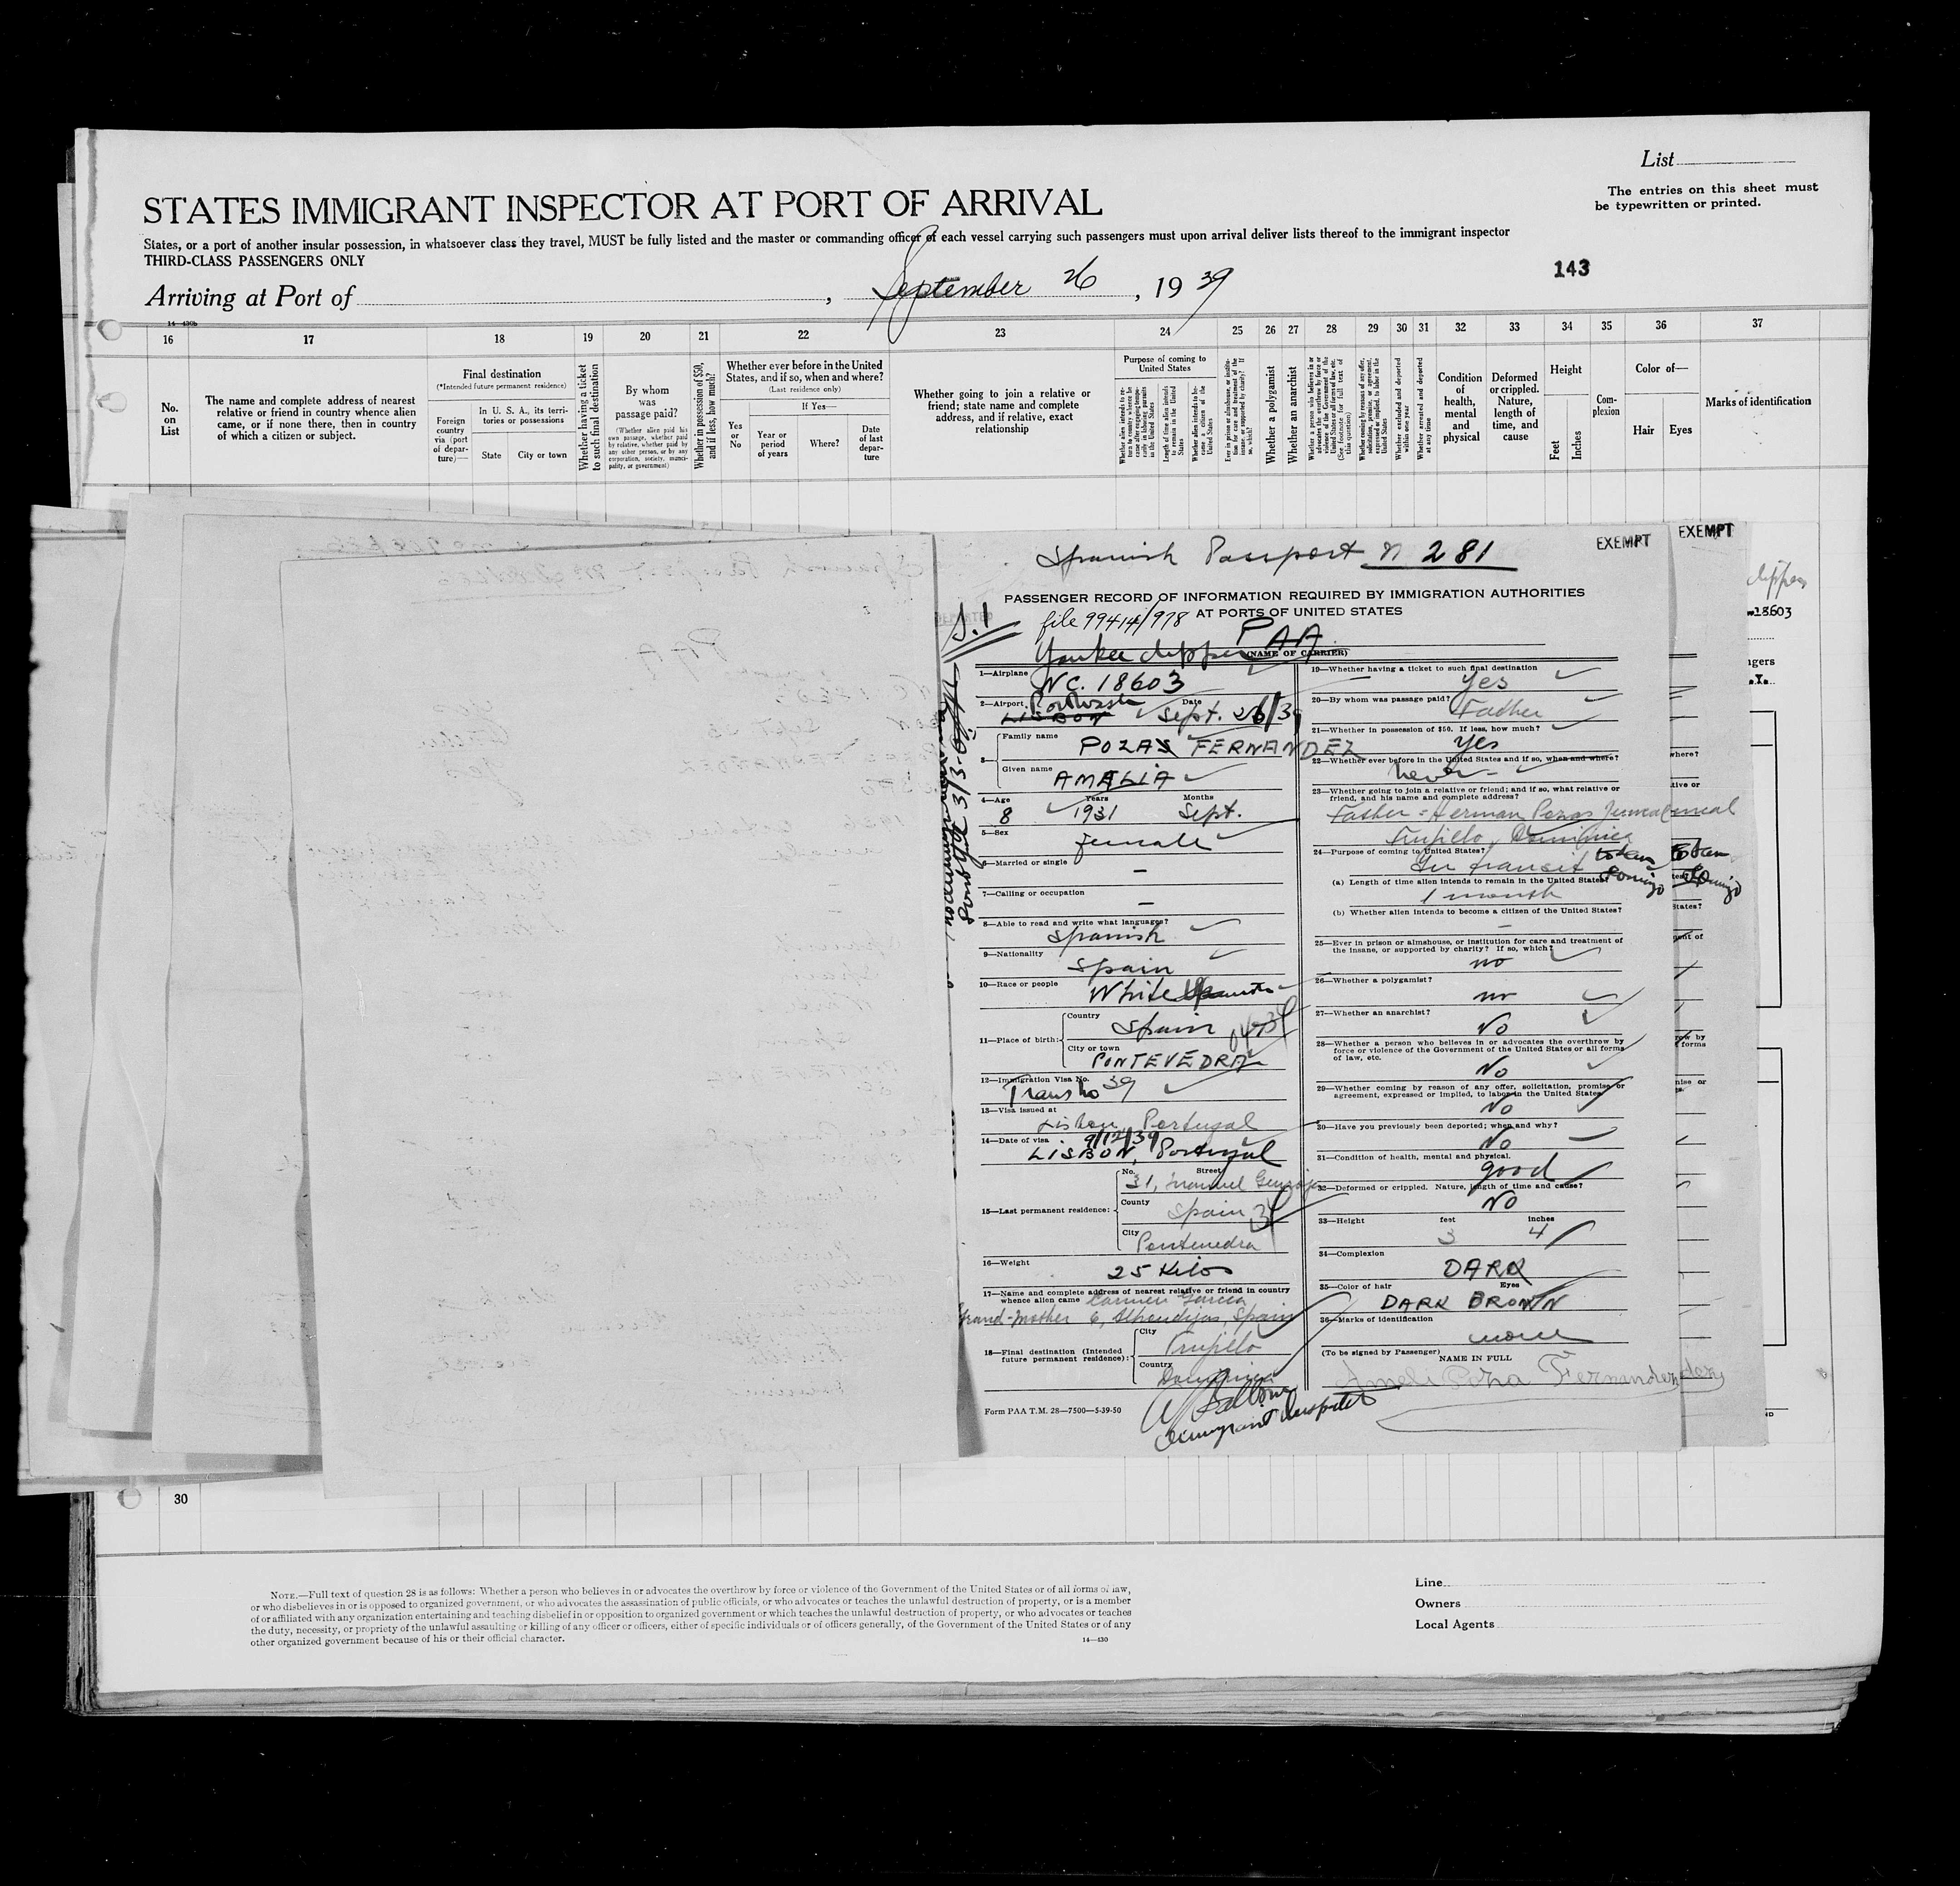 List
The entries on this sheet must
be typewritten or printed.
STATES IMMIGRANT INSPECTOR AT PORT OF ARRIVAL
States, or a port of another insular possession, in whatsoever class they travel, MUST be fully listed and the master or commanding officer of each vessel carrying such passengers must upon arrival deliver lists thereof to the immigrant inspector
THIRD-CLASS PASSENGERS ONLY
143
Arriving at Port of , September 26 , 19 39
16 17 18 19 20 21 22 23 24 25 26 27 28 29 30 31 32 33 34 35 36 37
No.
on
List
The name and complete address of nearest
relative or friend in country whence alien
came, or if none there, then in country
of which a citizen or subject.
Final destination
(*Intended future permanent residence)
Foreign
country
via (port
of depar-
ture)—
In U. S. A., its terri-
tories or possessions
State City or town
Whether having a ticket
to such final destination
By whom
was
passage paid?
(Whether alien paid his
own passage, whether paid
by any other person, or by any
corporation, society, munici-
pality, or government)
Whether in possession of $50,
and if less, how much?
Whether ever before in the United
States, and if so, when and where?
(Last residence only)
If Yes—
Yes
or
No
Year or
period
of years
Where?
Date
of last
depar-
ture
Whether going to join a relative or
friend; state name and complete
address, and if relative, exact
relationship
Purpose of coming to
United States
Whether a polygamist
Whether an anarchist
Whether excluded and deported
within one year
Whether arrested and deported
at any time
Condition
of
health,
mental
and
physical
Deformed
or crippled.
Nature,
length of
time, and
cause
Height
Feet
Inches
Com-
plexion
Color of—
Hair Eyes
Marks of identification
EXEMPT
EXEMPT
Spanish Passport n 281
PASSENGER RECORD OF INFORMATION REQUIRED BY IMMIGRATION AUTHORITIES
AT PORTS OF UNITED STATES
file 99414/978
PAA
Yankee clipper
(NAME OF CARRIER)
S.1
1—Airplane NC. 18603
2—Airport LISBON Date Sept. 26/39
3— Family name POZAS FERNANDEZ
Given name AMALIA
4—Age 8 Years 1931 Months Sept.
5—Sex female
6—Married or single —
7—Calling or occupation —
8—Able to read and write what languages? Spanish
9—Nationality Spain
10—Race or people White
11—Place of birth: Country Spain
City or town PONTEVEDRA
12—Immigration Visa No. 39
13—Visa issued at Lisbon, Portugal
14—Date of visa 9/12/39
LISBON, Portugal
15—Last permanent residence: No. 31, Street
County Spain
City Pontevedra
16—Weight 25 Kilos
17—Name and complete address of nearest relative or friend in country
whence alien came Carmen Garcia
Grand-Mother 6, Spain
18—Final destination (Intended
future permanent residence): City Trujillo
Country
Form PAA T.M. 28—7500—5-39-50
Immigrant Inspector
19—Whether having a ticket to such final destination
Yes
20—By whom was passage paid?
Father
21—Whether in possession of $50. If less, how much?
Yes
22—Whether ever before in the United States and if so, when and where?
never
23—Whether going to join a relative or friend; and if so, what relative or
friend, and his name and complete address?
Father = Herman Pozas
Trujillo,
24—Purpose of coming to United States?
In transit
(a) Length of time alien intends to remain in the United States?
1 month
(b) Whether alien intends to become a citizen of the United States?
—
25—Ever in prison or almshouse, or institution for care and treatment of
the insane, or supported by charity? If so, which?
no
26—Whether a polygamist?
no
27—Whether an anarchist?
No
28—Whether a person who believes in or advocates the overthrow by
force or violence of the Government of the United States or all forms
of law, etc.
No
29—Whether coming by reason of any offer, solicitation, promise or
agreement, expressed or implied, to labor in the United States?
No
30—Have you previously been deported; when and why?
No
31—Condition of health, mental and physical.
good
32—Deformed or crippled. Nature, length of time and cause?
No
33—Height feet inches
3 4
34—Complexion
DARK
35—Color of hair Eyes
DARK BROWN
36—Marks of identification
none
(To be signed by Passenger)
NAME IN FULL
18603
30
NOTE.—Full text of question 28 is as follows: Whether a person who believes in or advocates the overthrow by force or violence of the Government of the United States or of all forms of law,
or who disbelieves in or is opposed to organized government, or who advocates the assassination of public officials, or who advocates or teaches the unlawful destruction of property, or is a member
of or affiliated with any organization entertaining and teaching disbelief in or opposition to organized government or which teaches the unlawful destruction of property, or who advocates or teaches
the duty, necessity, or propriety of the unlawful assaulting or killing of any officer or officers, either of specific individuals or of officers generally, of the Government of the United States or of any
other organized government because of his or their official character.
14—430
Line
Owners
Local Agents